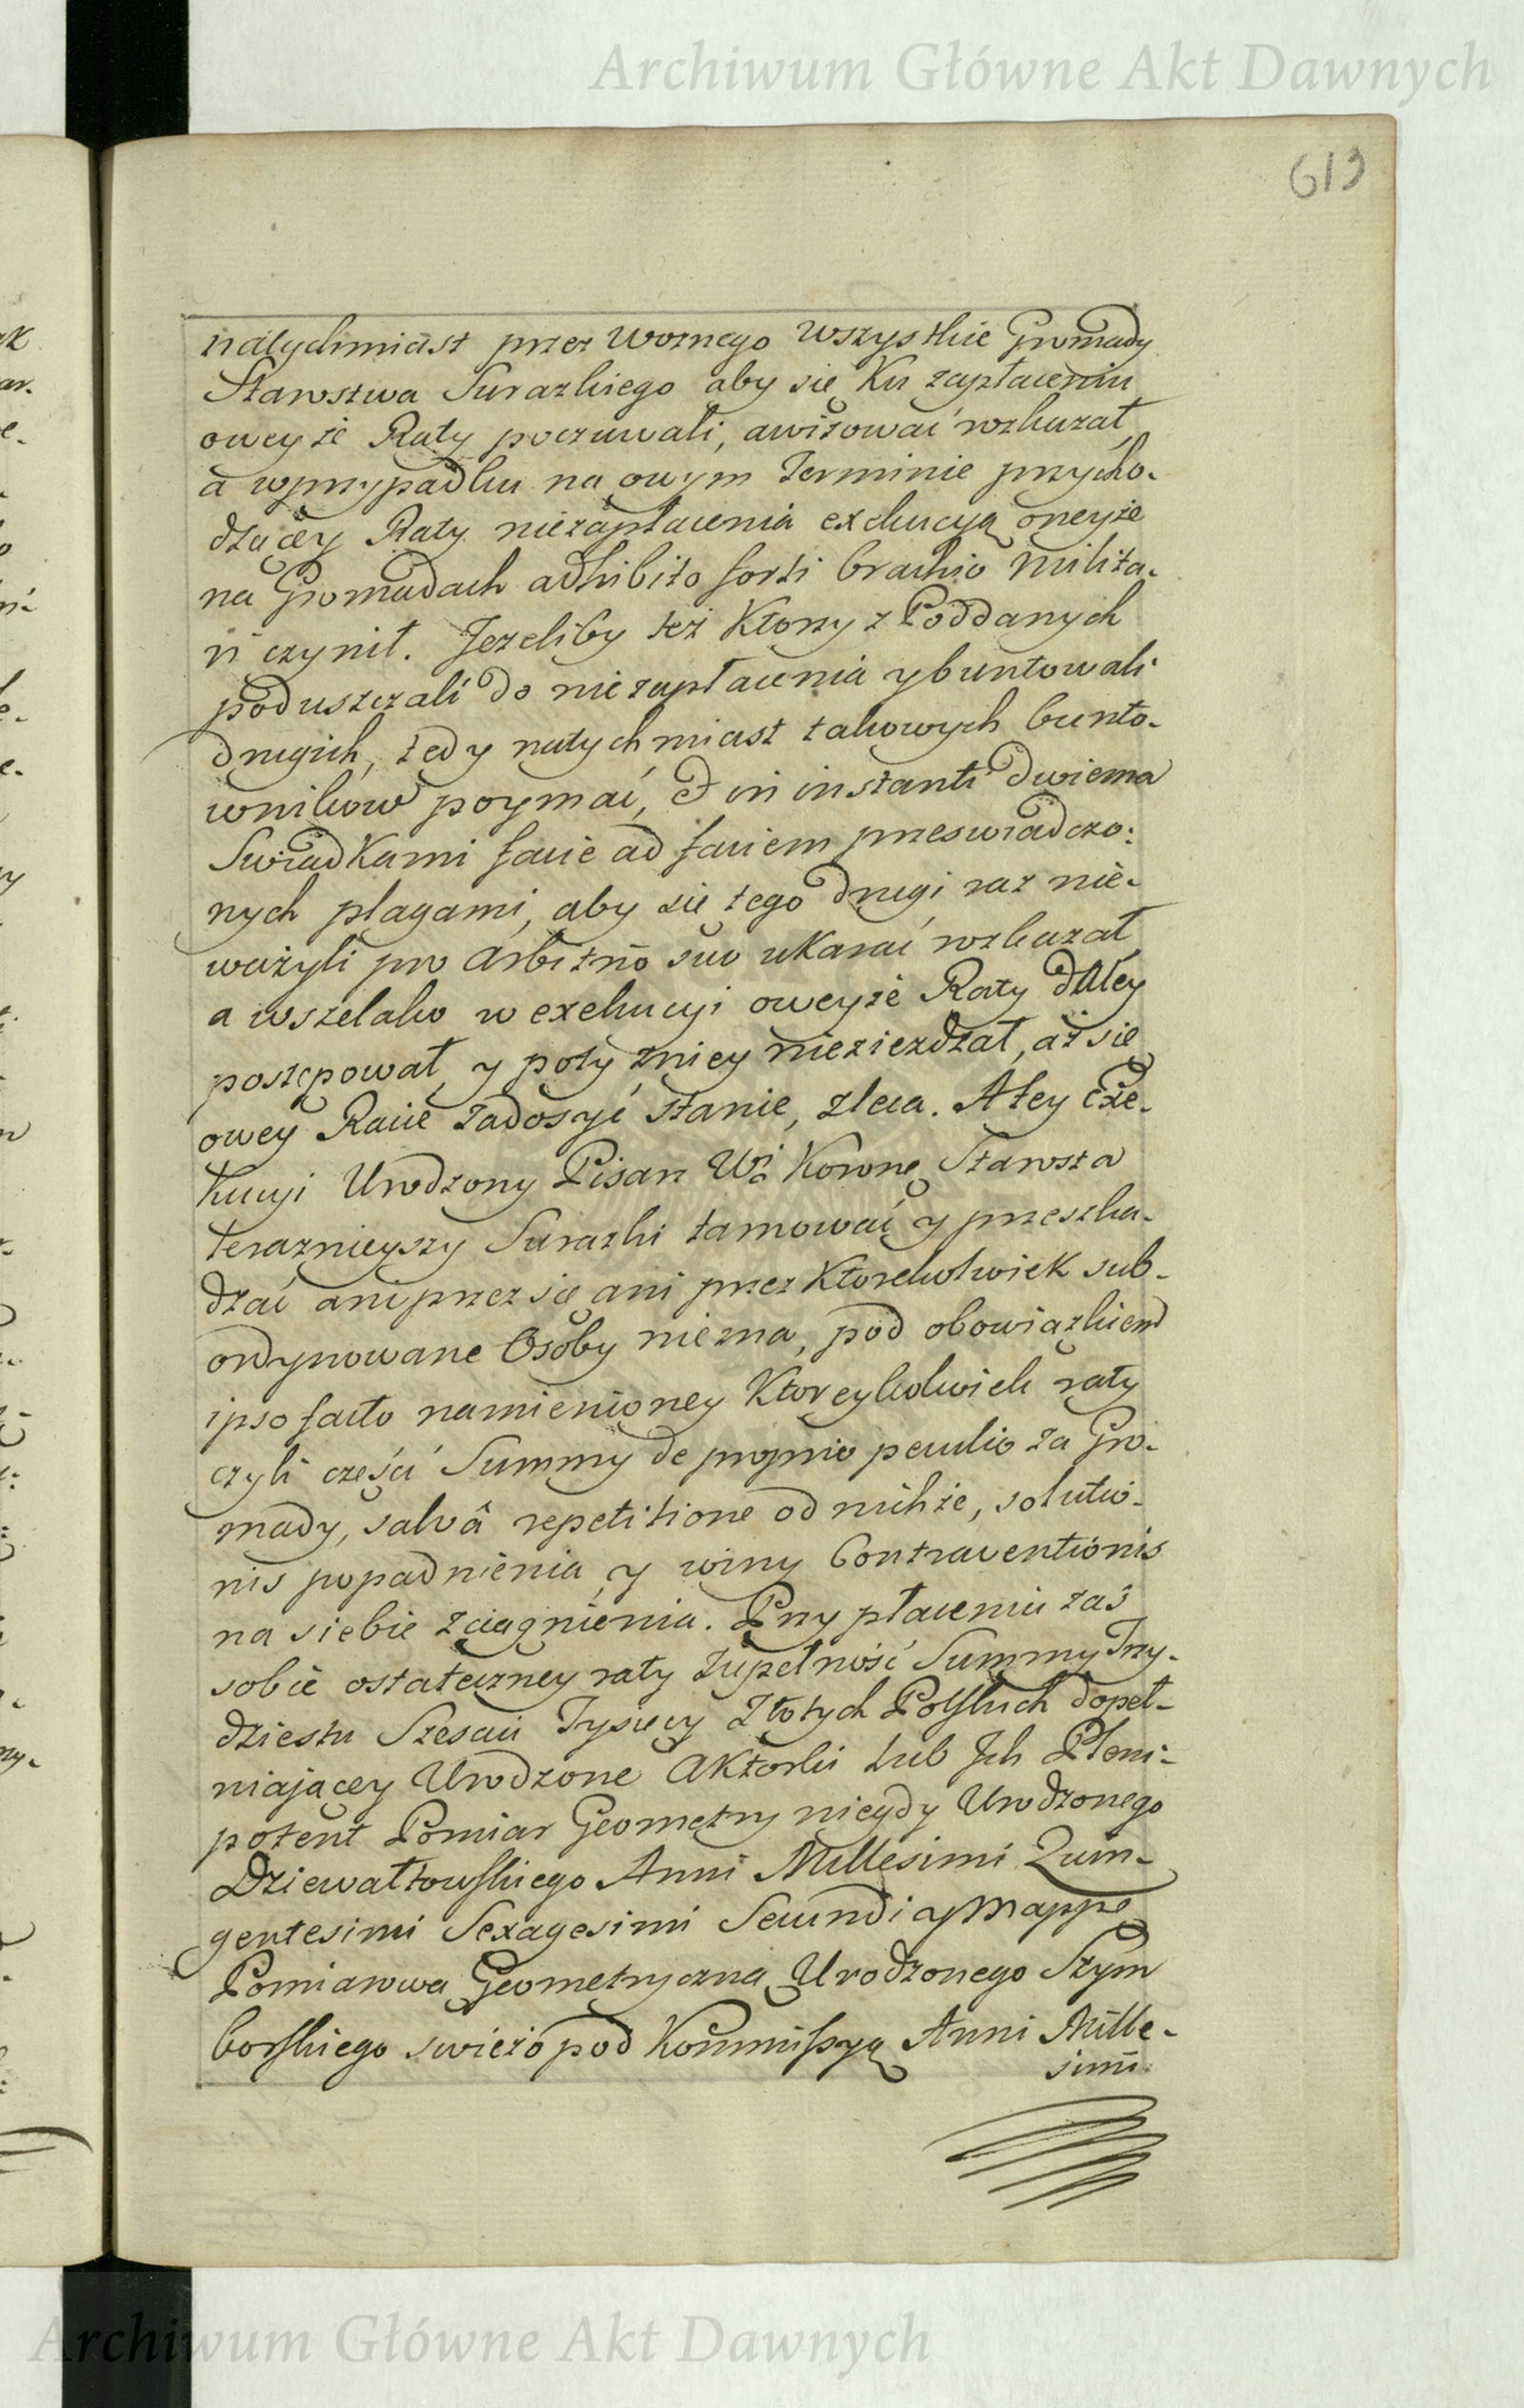 Archiwum Główne Akt Dawnych
619
natychmiast przez Woznego wszystkie Gromady
Starostwa Surazkiego aby się Ku zapłaceniu
oweyże Raty poczuwali, awizować rozkazał,
a wprzypadku na owym Terminie przycho-
dzącey Raty niezapłacenia exekucyą oneyże
na Gromadach adhibito forti brachio milita-
ri czynił. Jezeliby też Ktory z Poddanych
poduszczali do niezapłacenia y buntowali
drugich, tedy natychmiast takowych bunto-
wnikow poymać, & in instanti dwiema
Swiadkami facie ad faciem przeswiadczo-
nych plagami, aby się tego drugi raz nie-
ważyli pro arbitrio suo ukarać rozkazał,
a wszelako w exekucyi oweyże Raty daley
postępował, y poty zniey niezieżdżał, aż się
owey Racie zadosyć stanie, zleca. A tey Exe-
kucyi Urodzony Pisarz Wį Koronę Starosta
teraznieyszy Surazki tamować y przeszka-
dzać ani przez się ani przez Ktorekolwiek sub-
ordynowane Osoby niema, pod obowiązkiem
ipso facto namienioney Ktoreykolwiek raty
czyli części Summy de proprio peculio za Gro-
mady, salvâ repetitione od nichże, solutio-
nis popadnienia, y winy Contraventionis
na siebie zciągnienia. Przy płaceniu zaś
sobie ostateczney raty zupełność Summy Trzy-
dziestu Szesciu Tysięcy Złotych Polskich dopeł-
niaiącey Urodzone Aktorki lub Ich Pleni-
potent Pomiar Geometry niegdy Urodzonego
Dziewałtowskiego Anni Millesimi Quin-
gentesimi Sexagesimi Secundi y Mappę
Pomiarową Geometryczną Urodzonego Szym
borskiego swieżo pod Kommissyą Anni Mille-
simi
Archiwum Główne Akt Dawnych